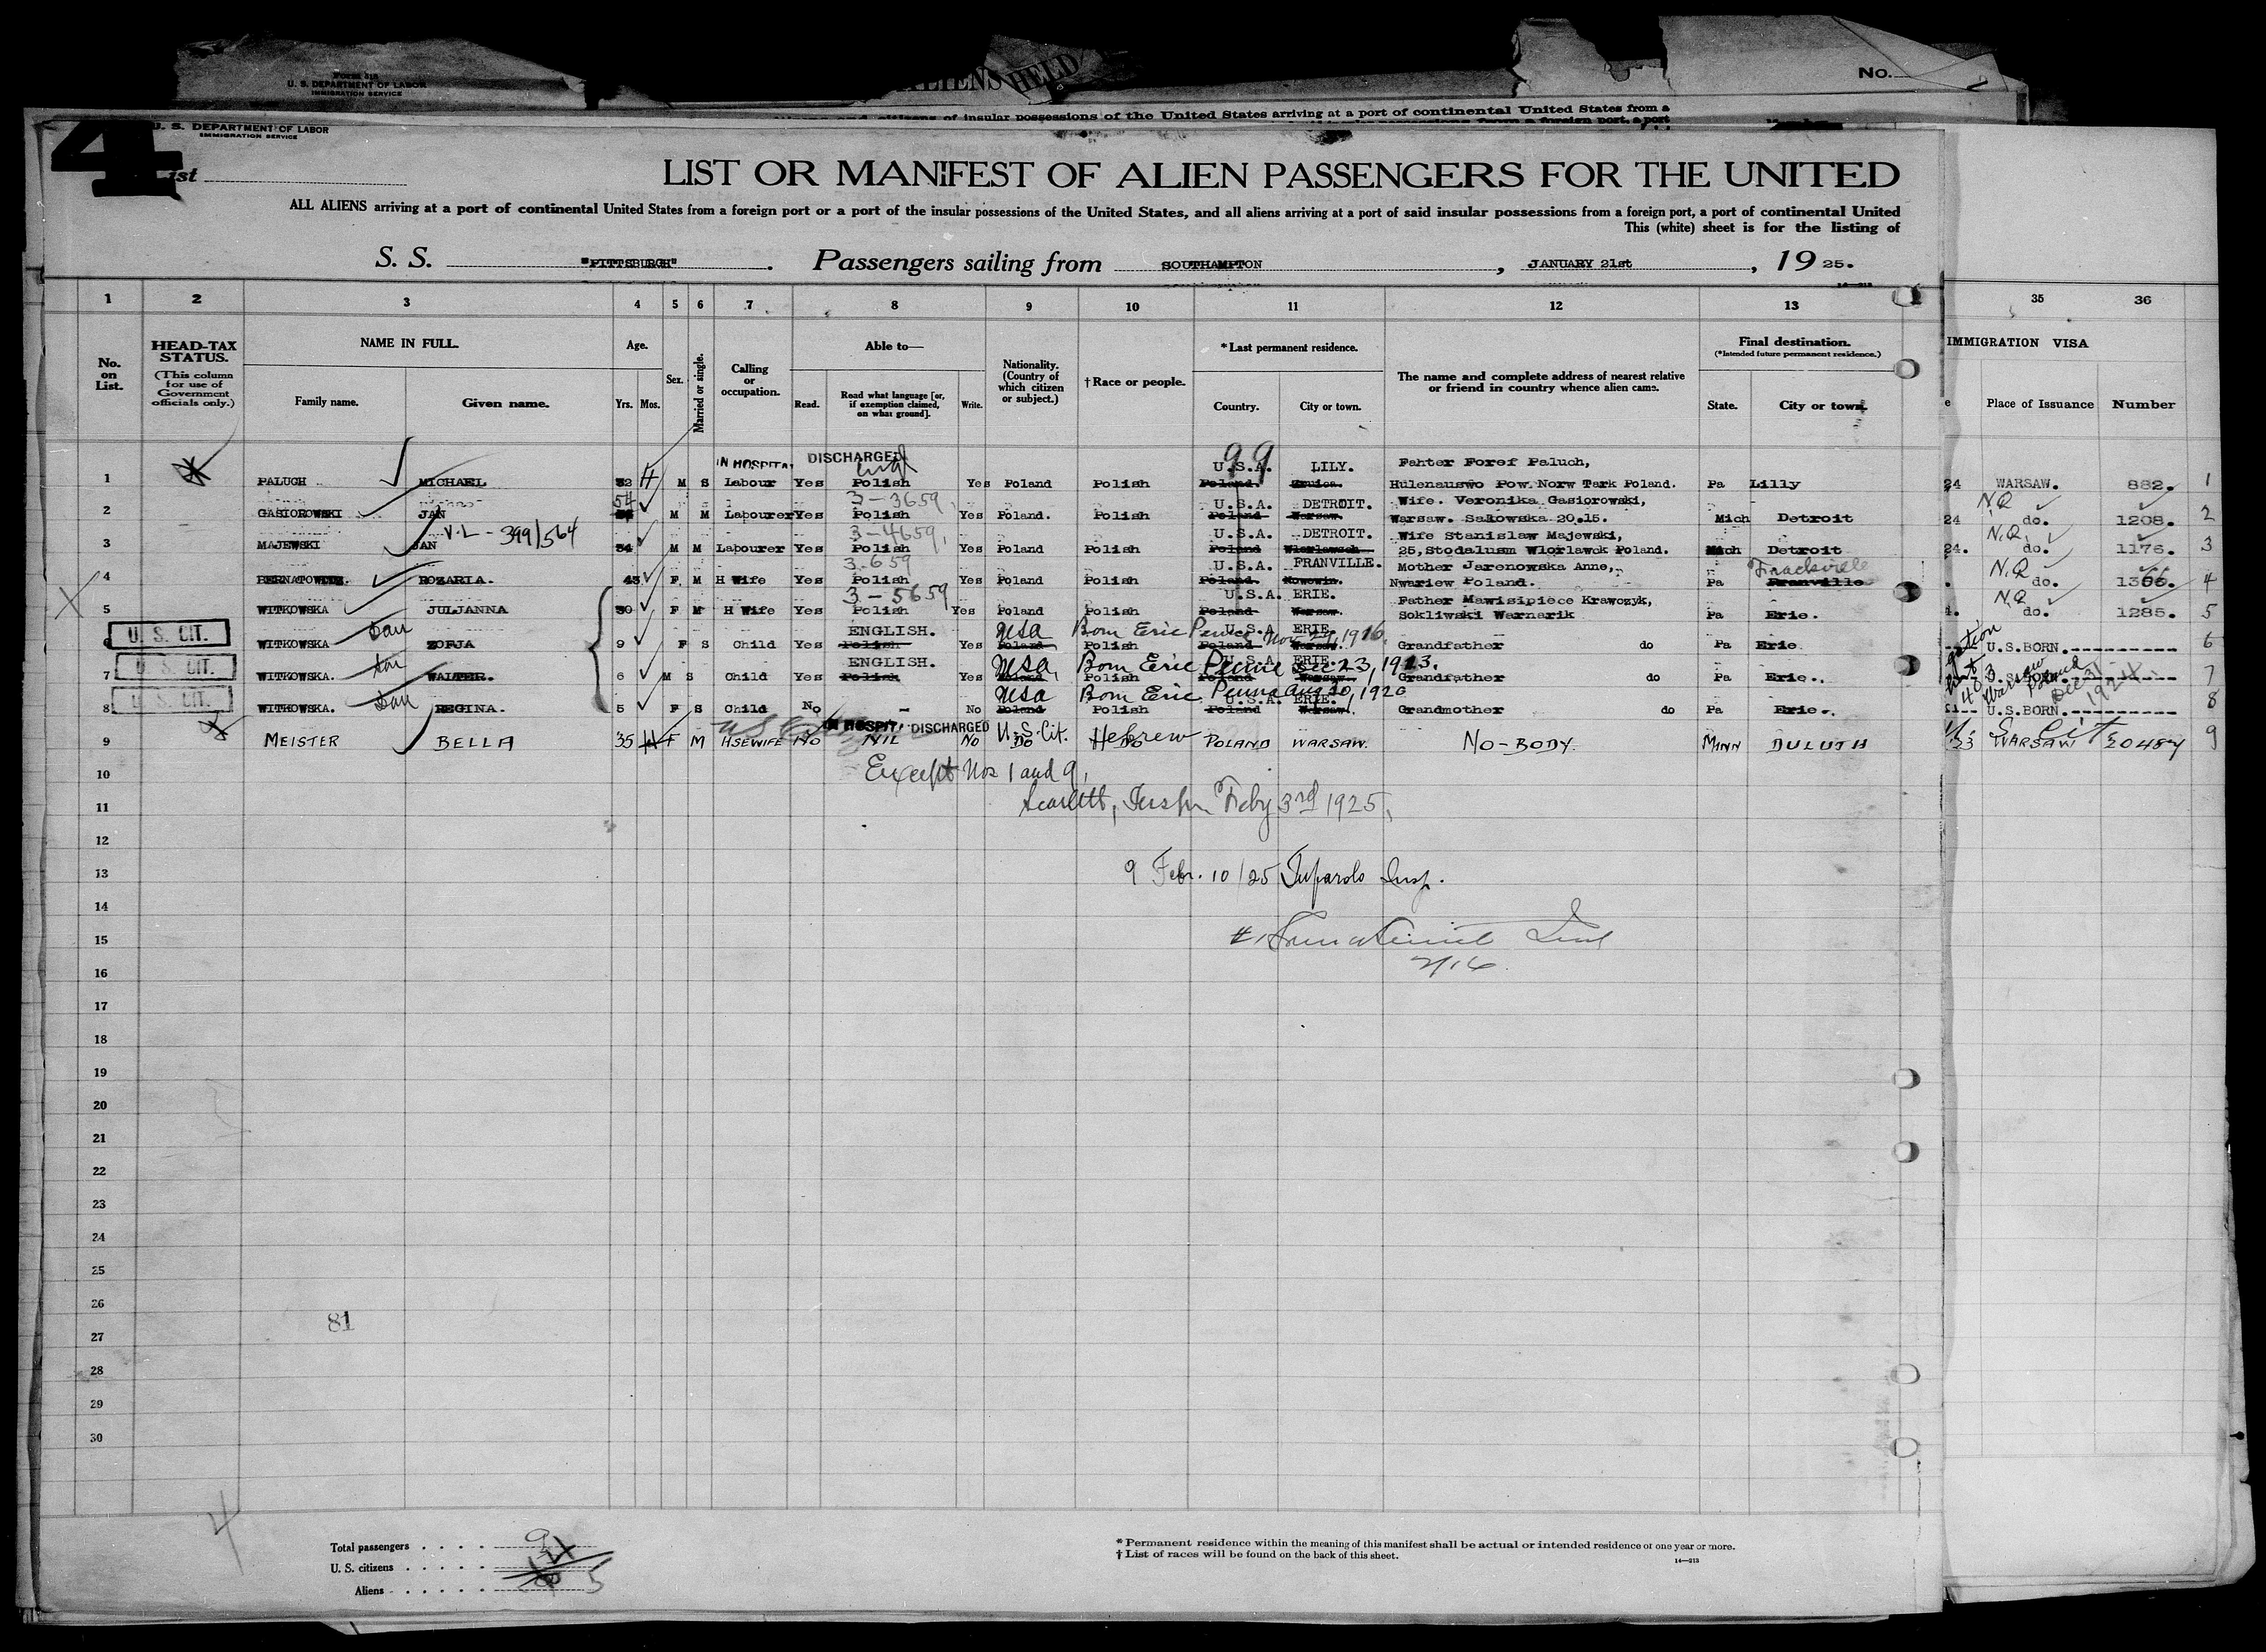 Form 315
U. S. DEPARTMENT OF LABOR
IMMIGRATION SERVICE
ALIENS HELD
No.
and citizens of insular possessions of the United States arriving at a port of continental United States from a
U. S. DEPARTMENT OF LABOR
IMMIGRATION SERVICE
4
List
LIST OR MANIFEST OF ALIEN PASSENGERS FOR THE UNITED
ALL ALIENS arriving at a port of continental United States from a foreign port or a port of the insular possessions of the United States, and all aliens arriving at a port of said insular possessions from a foreign port, a port of continental United
This (white) sheet is for the listing of
S. S. "PITTSBURGH". Passengers sailing from SOUTHAMPTON, JANUARY 21st, 1925.
1 2 3 4 5 6 7 8 9 10 11 12 13 35 36
No. on List.
HEAD-TAX STATUS.
(This column for use of Government officials only.)
NAME IN FULL.
Family name. Given name.
Age.
Yrs. Mos.
Sex.
Married or single.
Calling or occupation.
Able to—
Read. Read what language [or, if exemption claimed, on what ground]. Write.
Nationality. (Country of which citizen or subject.)
† Race or people.
* Last permanent residence.
Country. City or town.
The name and complete address of nearest relative or friend in country whence alien came.
Final destination.
(*Intended future permanent residence.)
State. City or town.
IMMIGRATION VISA
Place of Issuance Number
IN HOSPITAL DISCHARGED 99
U.S.A. LILY. Fahter Foref Paluch,
1 PALUCH MICHAEL 32 M S Labour Yes Polish Yes Poland Polish Poland Hulenauswo Pow.Norw Tark Poland. Pa Lilly 24 WARSAW. 882. 1
54 3-3659 U.S.A. DETROIT. Wife. Veronika Gasiorowski, N.Q
2 GASIOROWSKI JAN M M Labourer Yes Polish Yes Poland. Polish Poland Warsaw. Warsaw. Sakowska 20.15. Mich Detroit 24 do. 1208. 2
V.L - 399/564 3-4659, U.S.A. DETROIT. Wife Stanislaw Majewski, N.Q.
3 MAJEWSKI JAN 54 M M Labourer Yes Polish Yes Poland Polish Poland 25,Stodalusm Wlorlawck Poland. Mich Detroit 24. do. 1176. 3
3-659 U.S.A. FRANVILLE. Mother Jarenowska Anne, Frackville N.Q
4 BERNATOWICZ. ROZARIA. 43 F M H Wife Yes Polish Yes Poland Polish Poland Nowowin. Nwariew Poland. Pa Franville do. 4
3-5659 U.S.A. ERIE. Father Mawisipiece Krawczyk, N.Q
5 WITKOWSKA JULJANNA 30 F M H Wife Yes Polish Yes Poland Polish Poland Warsaw. Sokliwski Warnarik Pa Erie. do. 1285. 5
U. S. CIT. Dau ENGLISH. USA Born Erie Penna Nov 29, 1916. U.S.A. ERIE.
6 WITKOWSKA ZOFJA 9 F S Child Yes Polish Yes Poland Polish Poland Warsaw. Grandfather do Pa Erie U.S.BORN. 6
U. S. CIT. Son ENGLISH. USA Born Erie Penna Dec 23, 1913. U.S.A. ERIE.
7 WITKOWSKA. WALTER. 6 M S Child Yes Polish Yes Poland Polish Poland Warsaw. Grandfather do Pa Erie. U.S.BORN. 7
U. S. CIT. Dau USA Born Erie Penna Aug 20, 1920 U.S.A. ERIE. Warsaw Poland Dec 31 1924
8 WITKOWSKA. REGINA. 5 F S Child No - No Poland Polish Poland Warsaw. Grandmother do Pa Erie. U.S.BORN. 8
IN HOSPIT. DISCHARGED U.S. Cit. Hebrew U.S. Cit
9 MEISTER BELLA 35 F M HSEWIFE NO NIL NO DO DO POLAND WARSAW. NO-BODY. MINN DULUTH 23 WARSAW 20487 9
10 Except Nos 1 and 9,
11 Scarlett, Insp. Feby 3rd 1925,
12
13 9 Febr. 10/25 Insp.
14
15
16 2/16
17
18
19
20
21
22
23
24
25
26
81
27
28
29
30
4
Total passengers . . . . 9
U. S. citizens . . . . .
Aliens . . . . . . 5
* Permanent residence within the meaning of this manifest shall be actual or intended residence of one year or more.
† List of races will be found on the back of this sheet.
14—213